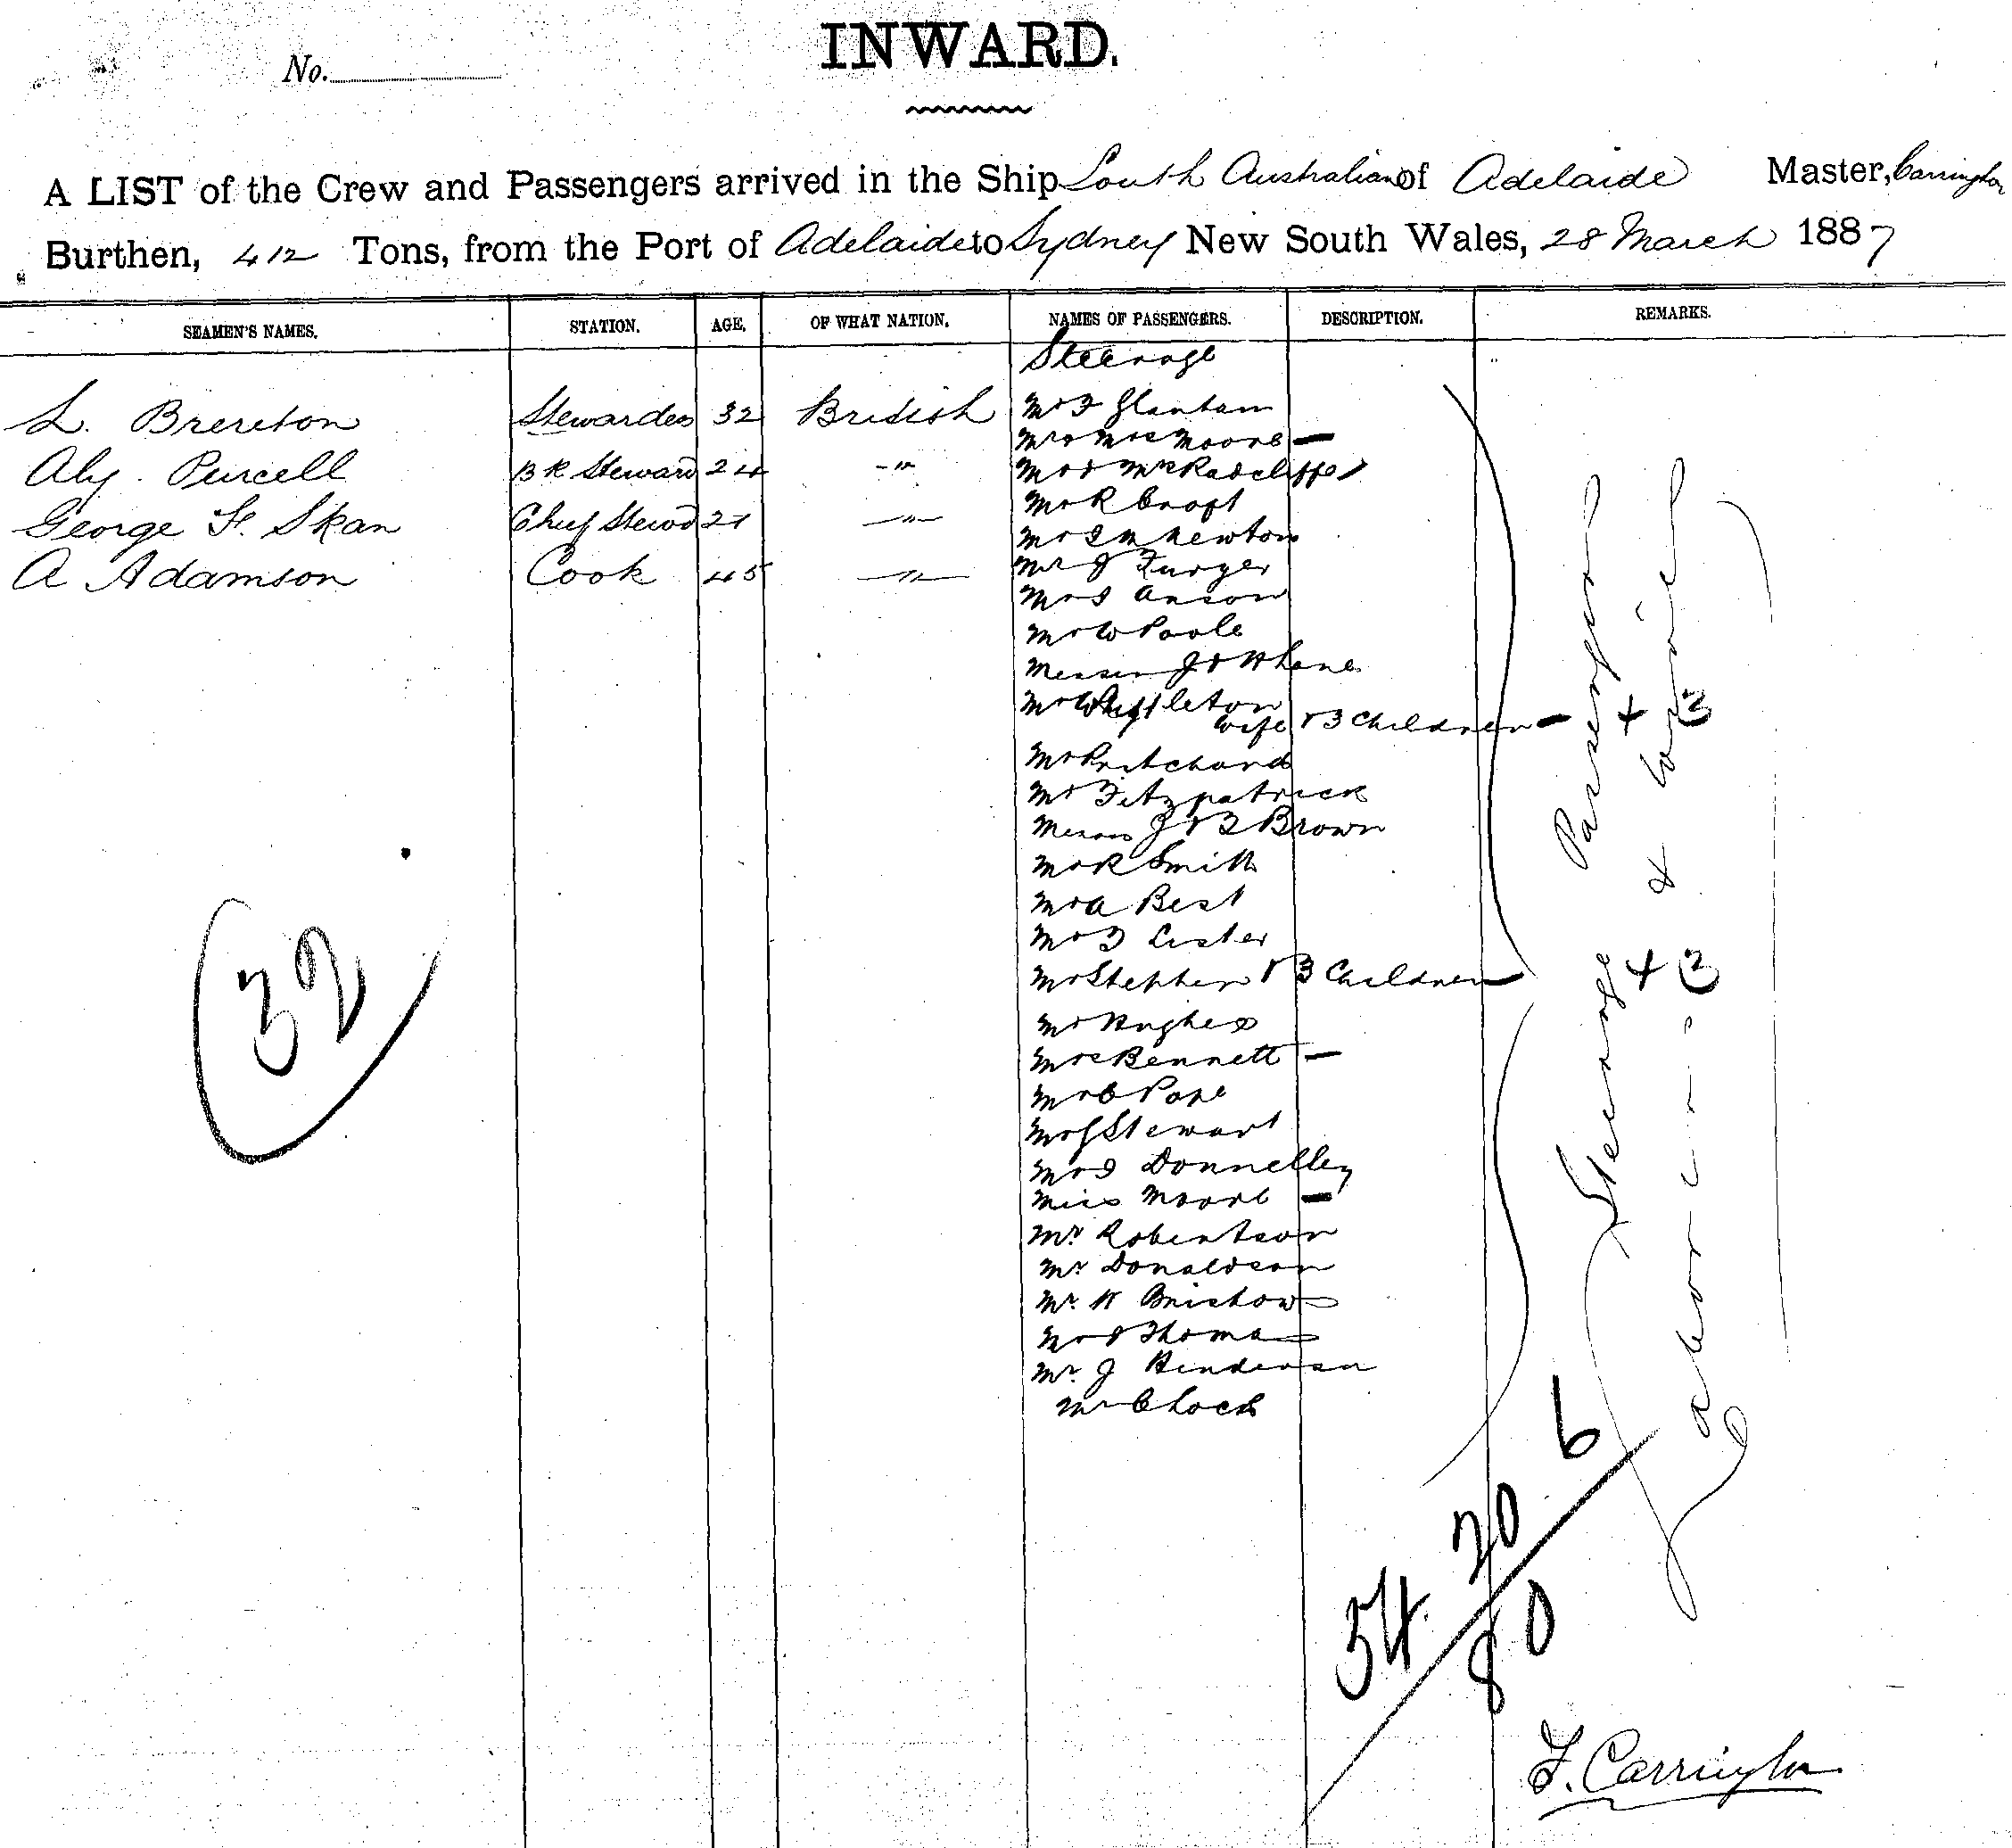 INWARD.
No.
A LIST of the Crew and Passengers arrived in the Ship South Australian of Adelaide Master, Carrington
Burthen, 412 Tons, from the Port of Adelaide to Sydney New South Wales, 28 March 1887
SEAMEN'S NAMES. STATION. AGE. OF WHAT NATION. NAMES OF PASSENGERS. DESCRIPTION. REMARKS.
Steerage
L. Brereton Stewardess 32 British
Mr F Glanham
Mr & Mrs Moore —
Aly. Purcell BR Steward 24 -"-
Mr & Mrs Radcliffe
Mr R Croft
George F. Skan Chief Stewd 27 -"-
Mr I M Newton
A Adamson Cook 45 -"-
Mr J Furger
Mr I Anson
Mr W Poole
Messrs J & H Lane
Mr Whiffleton
wife & 3 Children —
Mr Pritchard
Mr Fitzpatrick
Messrs J & T Brown
Mr R Smith
Mr A Best
Mr T Lister
Mr Stephen & 3 Children —
Mr Hughes
Mrs Bennett —
Mr C Pope
Mr G Stewart
Mr I Donnelley
Miss Moore —
Mr Robertson
Mr Donaldson
Mr. H Bristow
Mr I Thomas
Mr. J Henderson
Mr C Lock
Steerage Passengers
&
32
6
20
54
80
F. Carrington